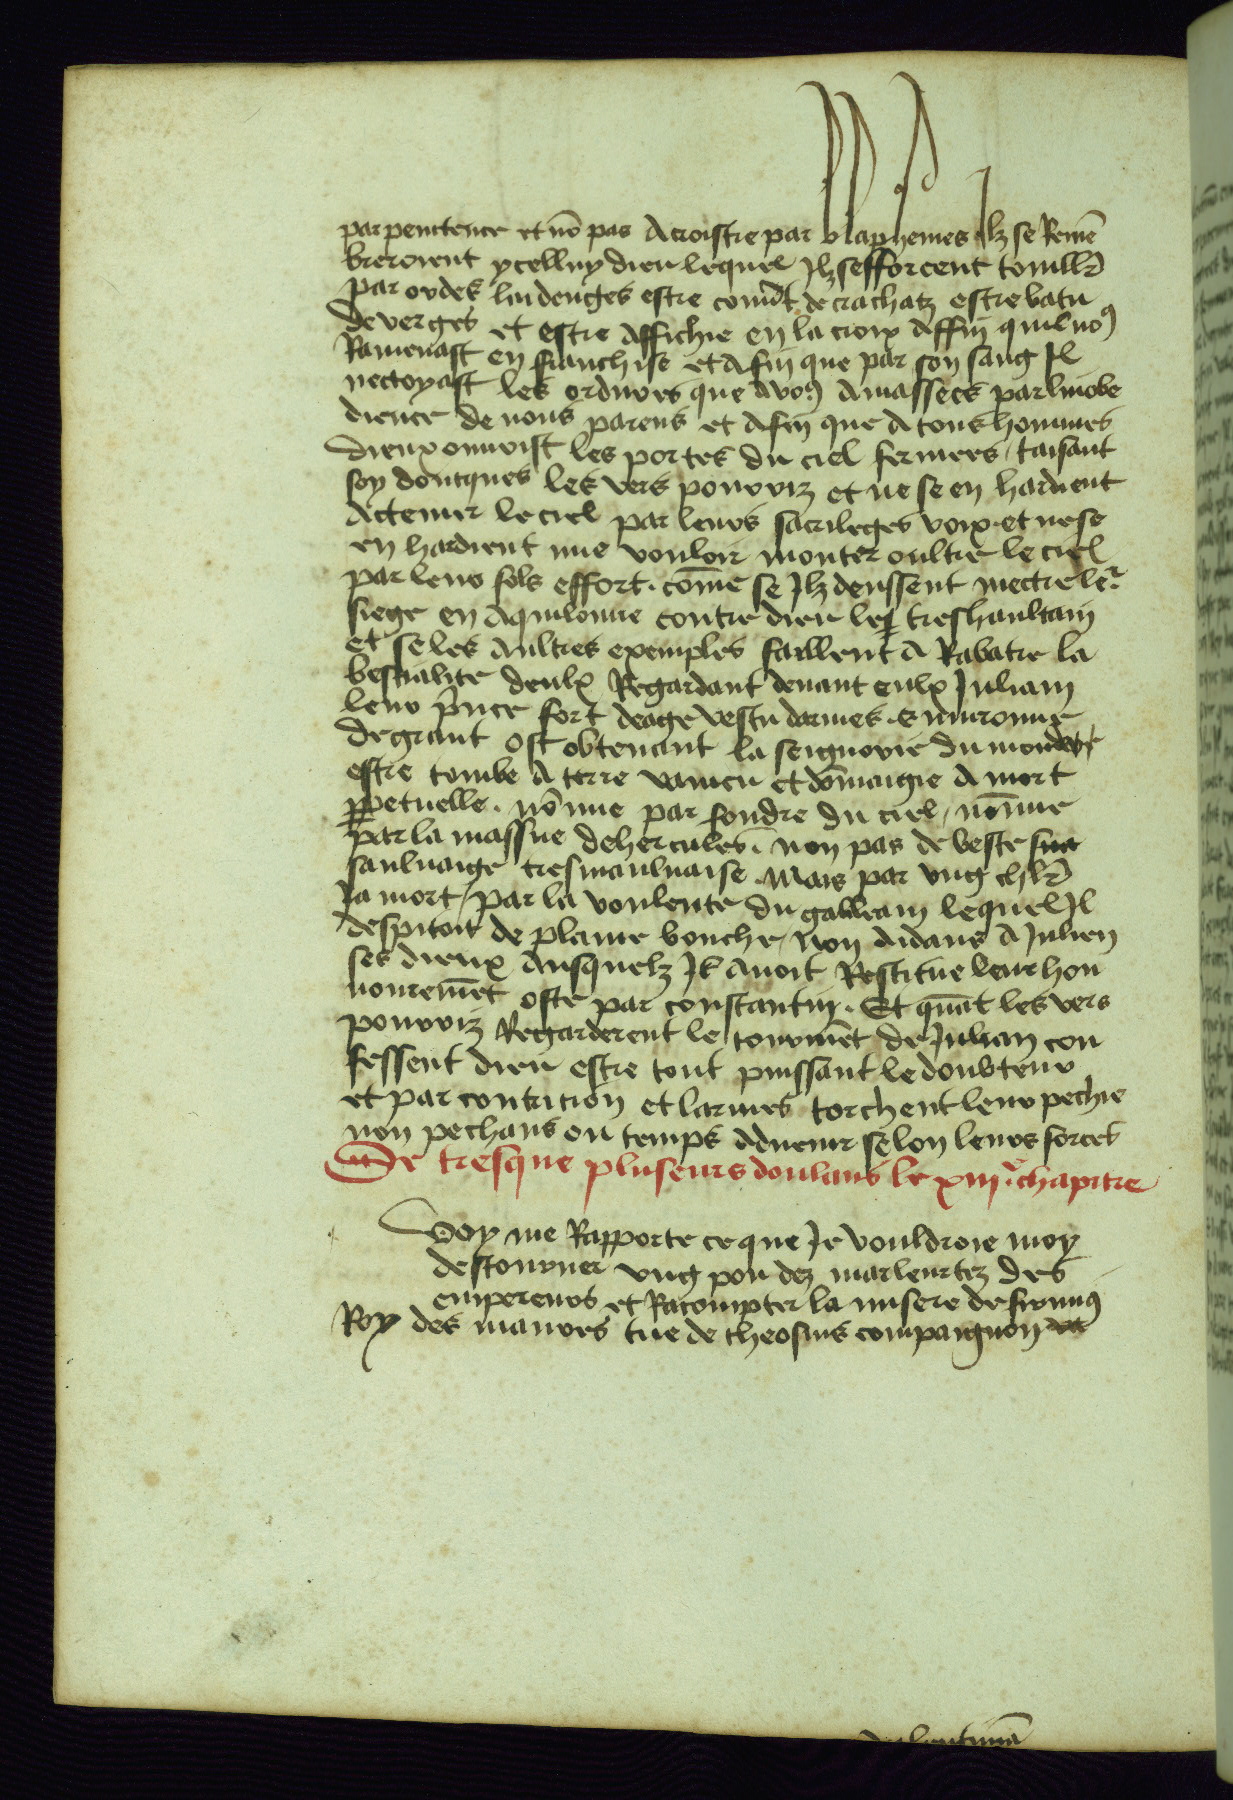 par penitence et nō pas Acroistre par blaphemes Ilz se Remē
breroient ycelluy dieu lequel Ilz sefforcent touillr̄
par ordes laidenges estre couūt de crachatz estre batu
de verges et estre Affichie en la croix Affin quil no9
Ramenast en franchise et Afin que par son sang Il
nectoyast les ordures que Avo9 Amassees par linobe
dience de nous parens et Afin que A tous hommes
dieux ouurist les portes du ciel fermees / taisant
soy doncques les vers pourriz et ne se en hardient
Actemer le ciel par leurs sacrileges voix et ne se
en hardient mie vouloir monter oultre le ciel
par leur fols effort . cōme se Ilz deussent mectre ler
siege en Aquilonne contre dieu le treshaultain
et se les Aultres exemples faillent A Rabatre la
bestialite deulx Regardant deuant eulx Juliam
leur p̄nce fort deage vestu darmes . enuironne
de grant ost obtenant la seignorie du monde
estre tombe A terre vaincu et dōmaigie A mort
ppetuelle . nō mie par fondre du ciel / nō mie
par la massue de hercules . non pas de beste
sauluaige tresmauluaise . Mais par vng chlr̄
Ja mort / par la voulente du galileam lequel Il
despitoit de plaine bouche / Non Aidans A Julien
ses dieux Ausquelz Il Auoit Restitue leur hon
nouremēt oste par constantin . Et quāt les vers
pourriz Regarderent le tourmēt de Julian con
fessent dieu estre tout puissant le doubteur
et par contricion et larmes torchent leur pechie
non pechans ou temps Aduenir selon leurs forces
De tresque pluseurs doulans le xiij.e chapitre
Soy me Rapporte ce que Je vouldroie moy
destourner vng pou dez marleurtez des
empereurs et Racompter la misere de firmu9
Roy des maures tue de theosius compaignon